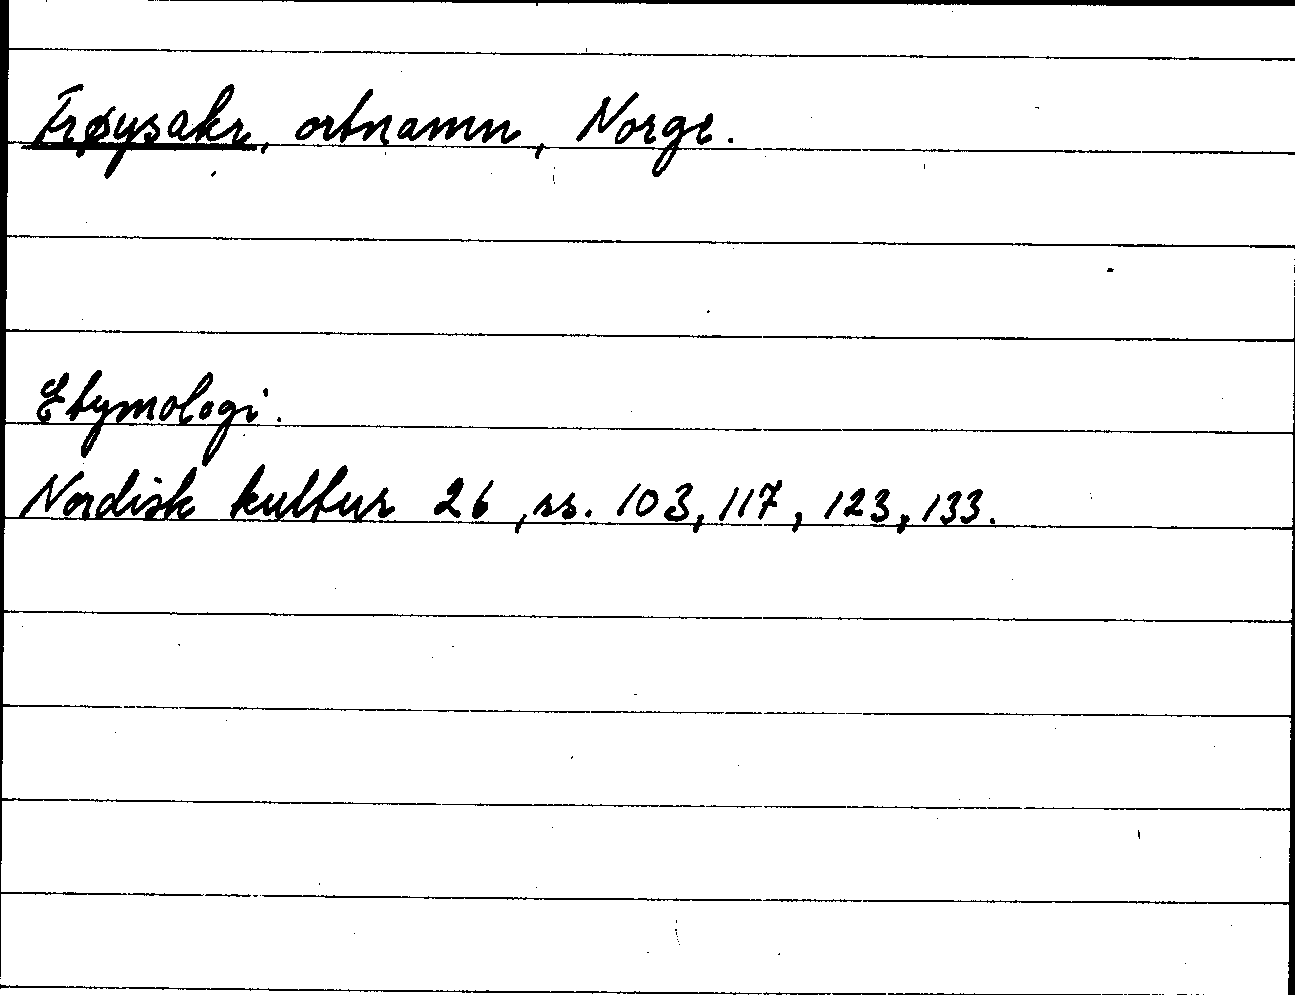 Frøysakr, ortnamn, Norge.
Etymologi.
Nordisk kultur 26, ss. 103, 117, 123, 133.